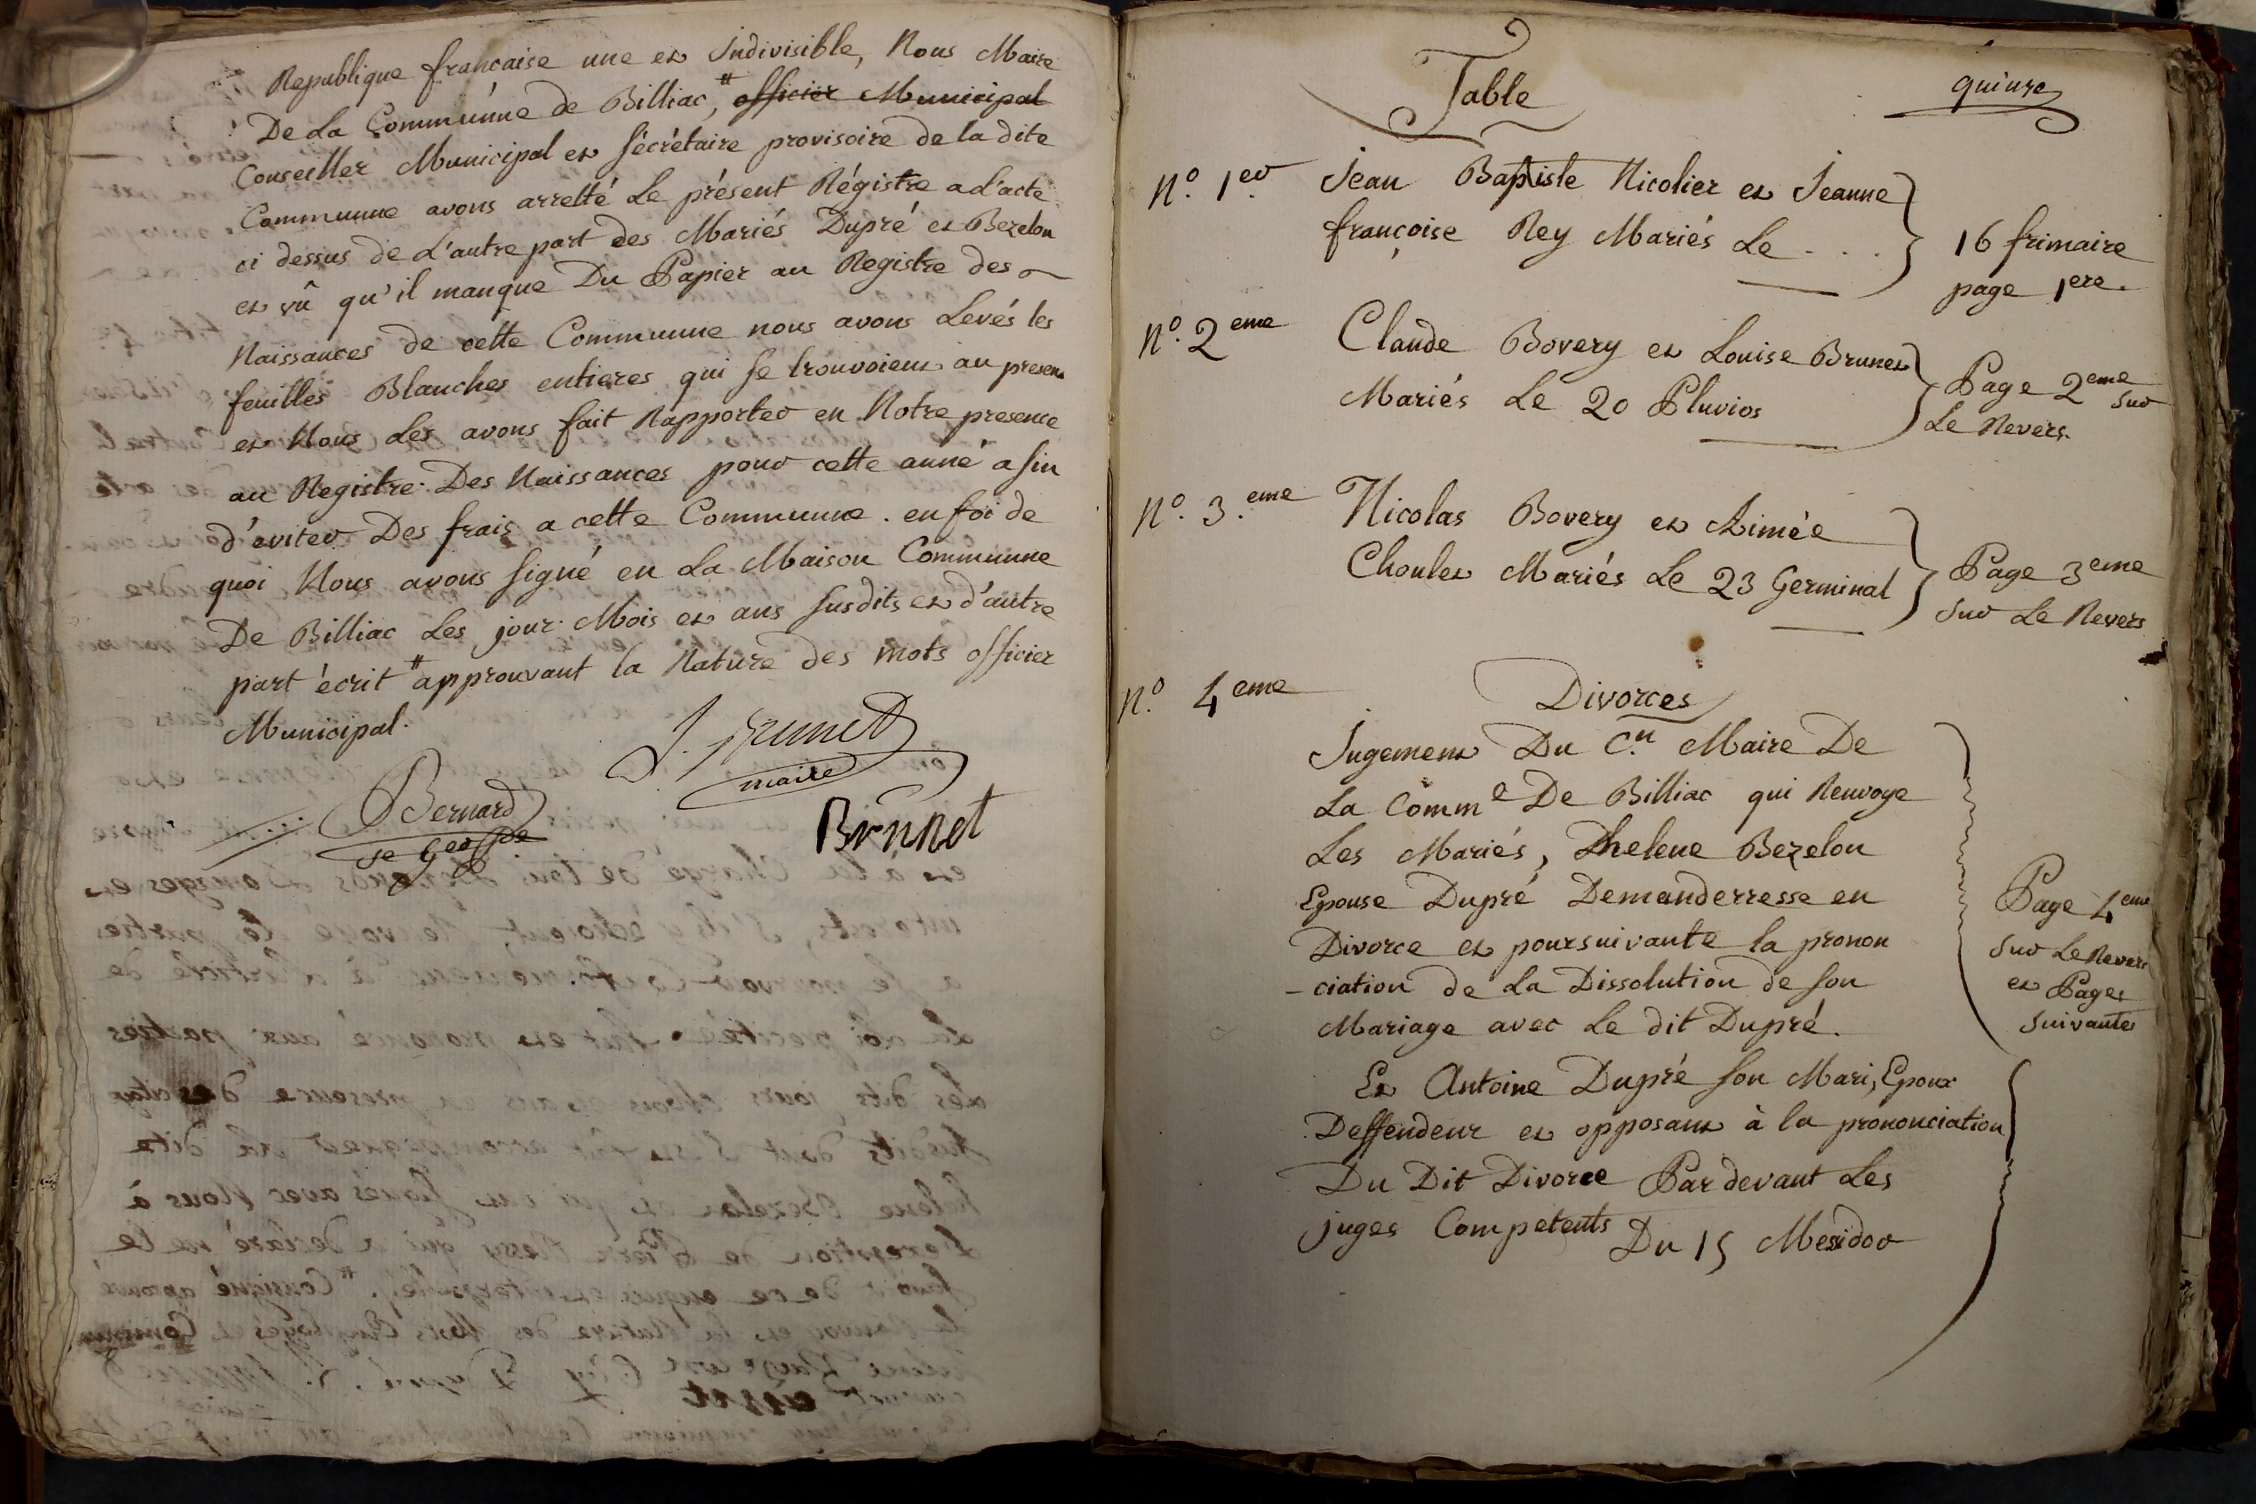 Republique francaise une et Indivisible, Nous Maire
De La Commúnne de Billiac, # officier Municipal
Conseiller Municipal et sécrétaire provisoire de la dite
Communne avons arretté Le présent Régistre a L'acte
ci dessus de L'autre part des Mariés Dupré et Bezelon
et vû qu'il manque Du Papier au Registre des
Naissances de cette Communne nous avons Levés les
feuilles Blanches entieres qui se trouvoient au present
et Nous Les avons fait Rapporter en Notre presence
au Registre Des Naissances pour cette anné afin
d'eviter Des frais a cette Communne. en foi de
quoi Nous avons signé en La Maison Communne
De Billiac Les jour Mois et ans susdits et d'autre
part écrit # approuvant la Rature des mots officier
Municipal.
J. Brunet
maire
Bernard
Brunet
Table
quinze
N.º 1er Jean Baptiste Nicolier et Jeanne
françoise Rey Mariés Le . . .
16 frimaire
page 1ere.
N.º 2eme Claude Bovery et Louise Brunet
Mariés Le 20 Pluvios
Page 2eme sur
Le Revers.
N.º 3.eme Nicolas Bovery et Aimée
Choulet Mariés Le 23 Germinal
Page 3eme
sur Le Revers
N.º 4eme Divorces
Jugement Du C.n Maire De
La Comme De Billiac qui Renvoye
Les Mariés, Dhelene Bezelon
Epouse Dupré Demanderresse en
Divorce et poursuivante la pronon
-ciation de La Dissolution de son
Mariage avec Le dit Dupré.
Page 4eme
sur Le Revers
et Pages
suivantes
Et Antoine Dupré son Mari, Epoux
Deffendeur et opposant à la prononciation
Du Dit Divorce Par devant Les
juges Competents Du 15 Mesidor